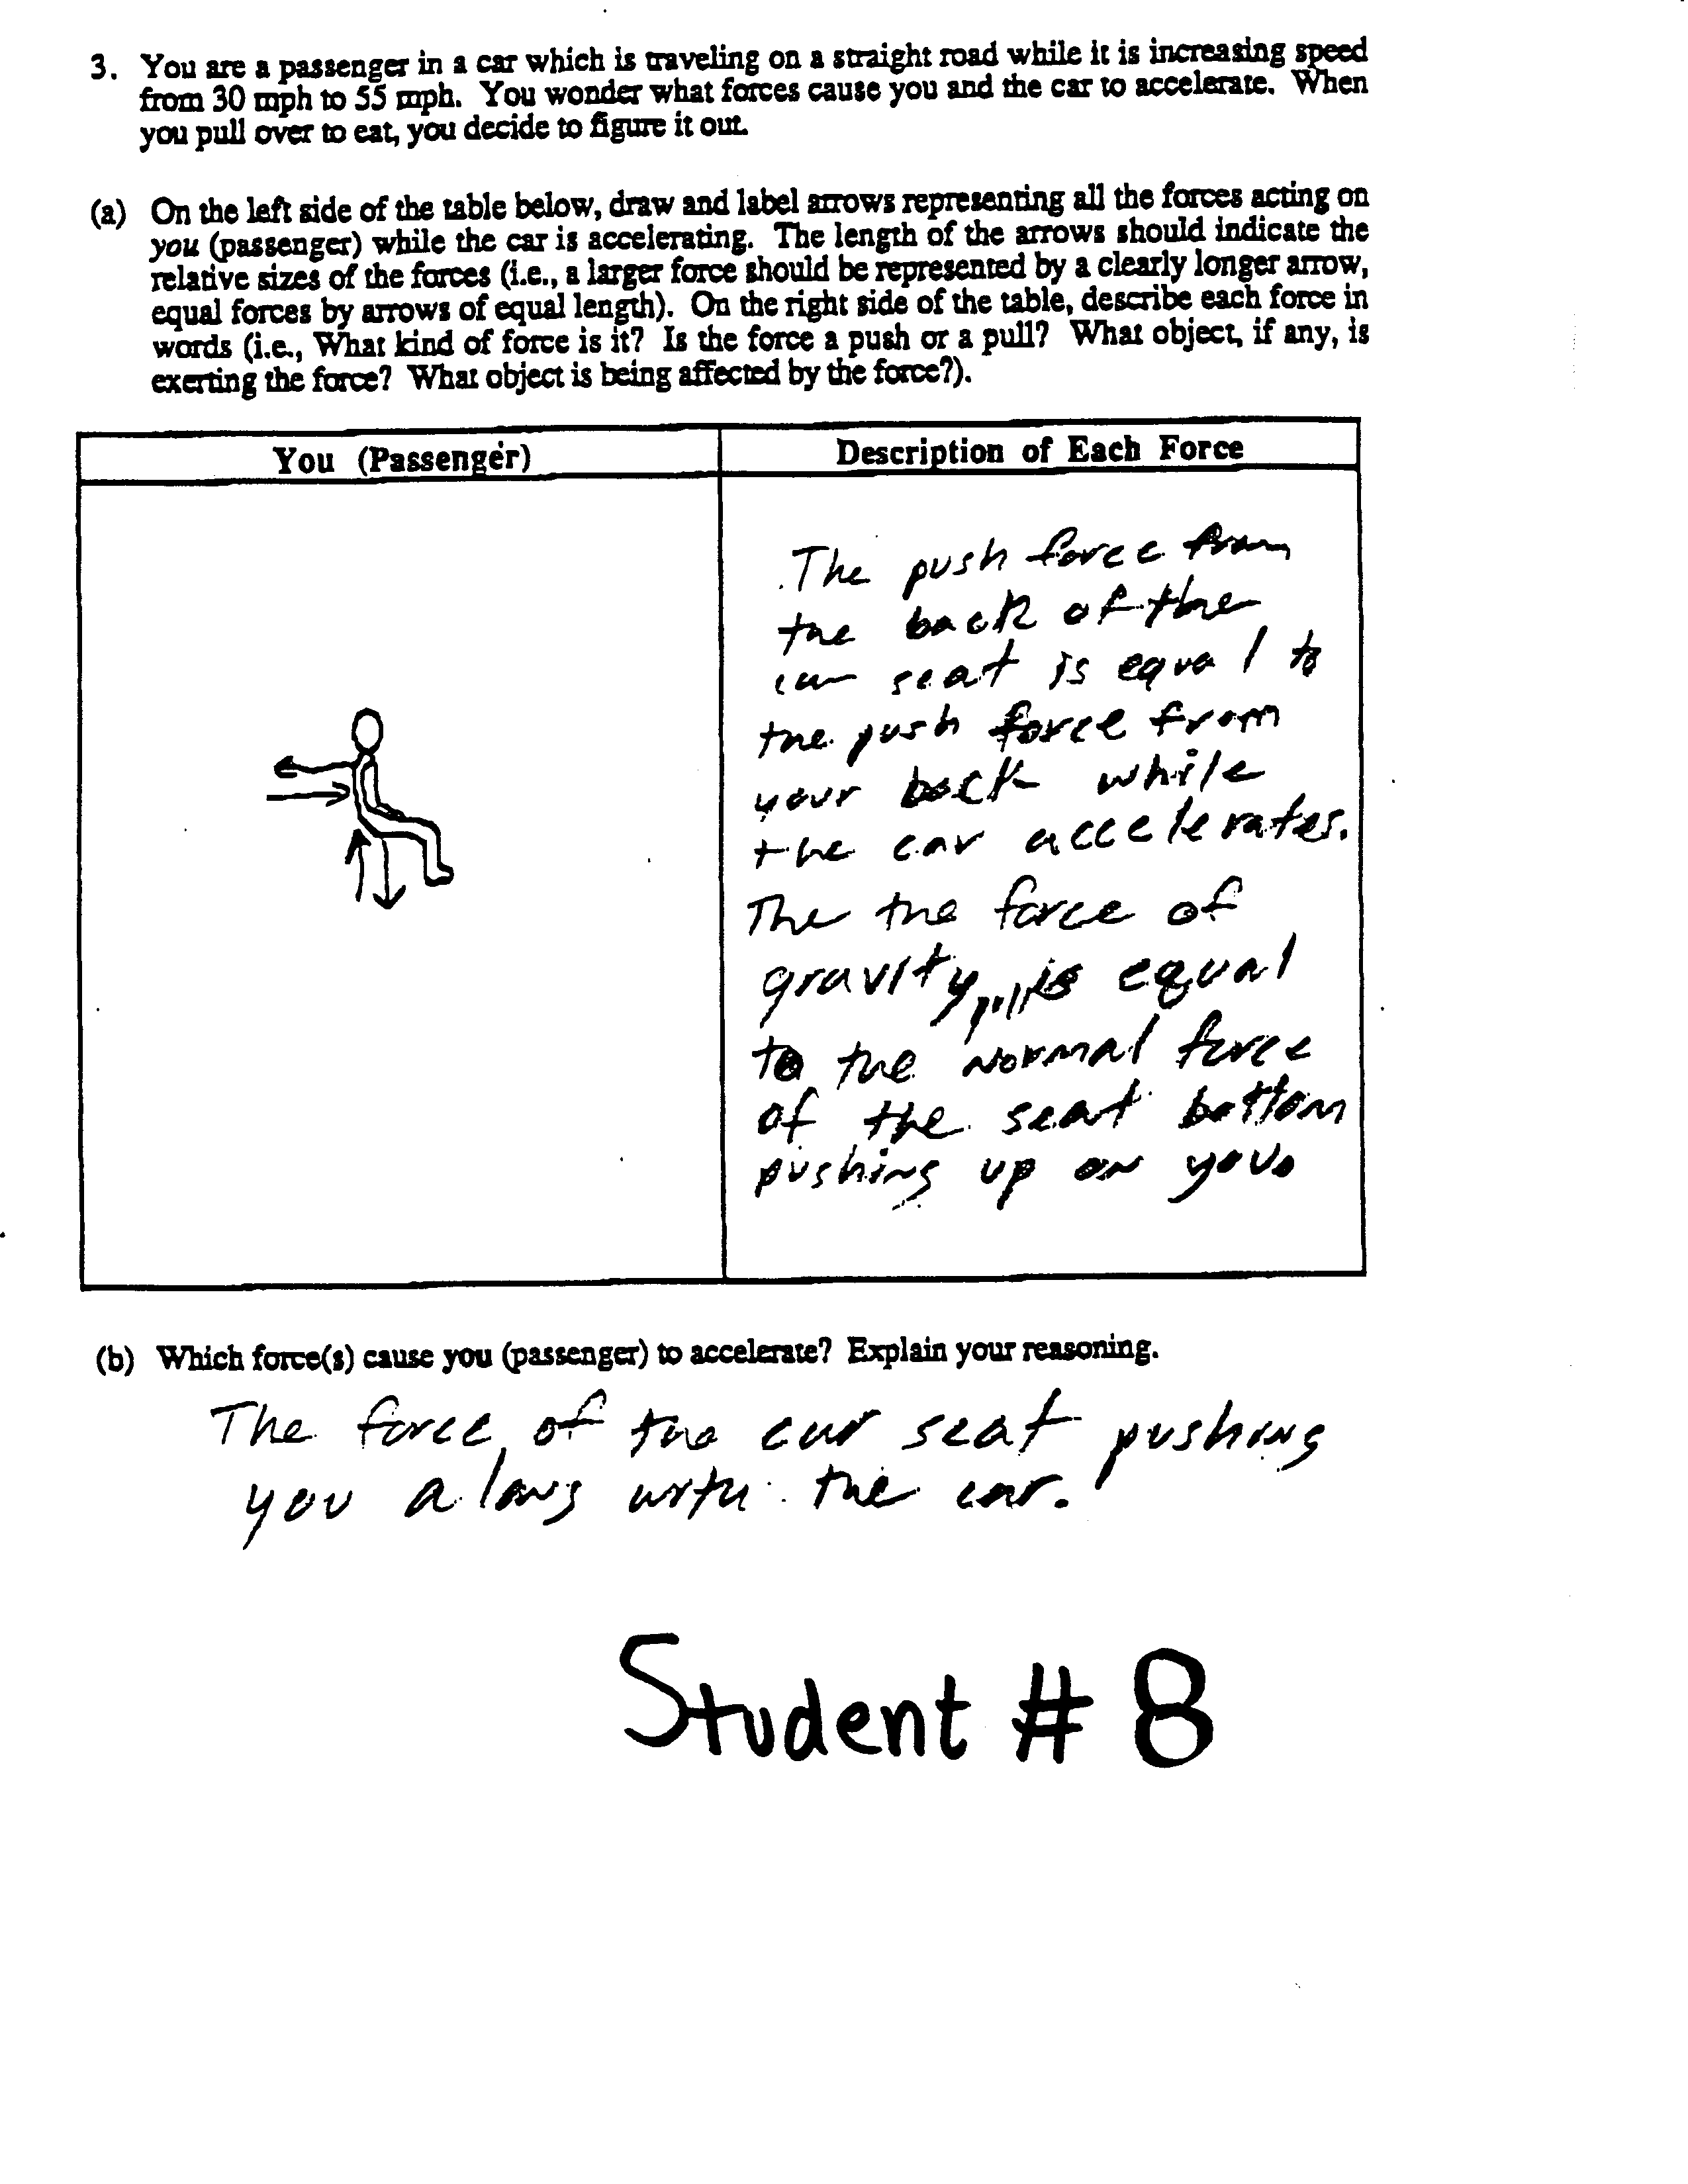 3. You are a passenger in a car which is traveling on a straight road while it is increasing speed
from 30 mph to 55 mph. You wonder what forces cause you and the car to accelerate. When
you pull over to eat, you decide to figure it out.
(a) On the left side of the table below, draw and label arrows representing all the forces acting on
you (passenger) while the car is accelerating. The length of the arrows should indicate the
relative sizes of the forces (i.e., a larger force should be represented by a clearly longer arrow,
equal forces by arrows of equal length). On the right side of the table, describe each force in
words (i.e., What kind of force is it? Is the force a push or a pull? What object, if any, is
exerting the force? What object is being affected by the force?).
You (Passenger)
Description of Each Force
The push force from
the back of the
car seat is equal to
the push force from
your back while
the car accelerates.
The the force of
gravity pull is equal
to the normal force
of the seat bottom
pushing up on you.
(b) Which force(s) cause you (passenger) to accelerate? Explain your reasoning.
The force of the car seat pushing
you along with the car.
Student # 8